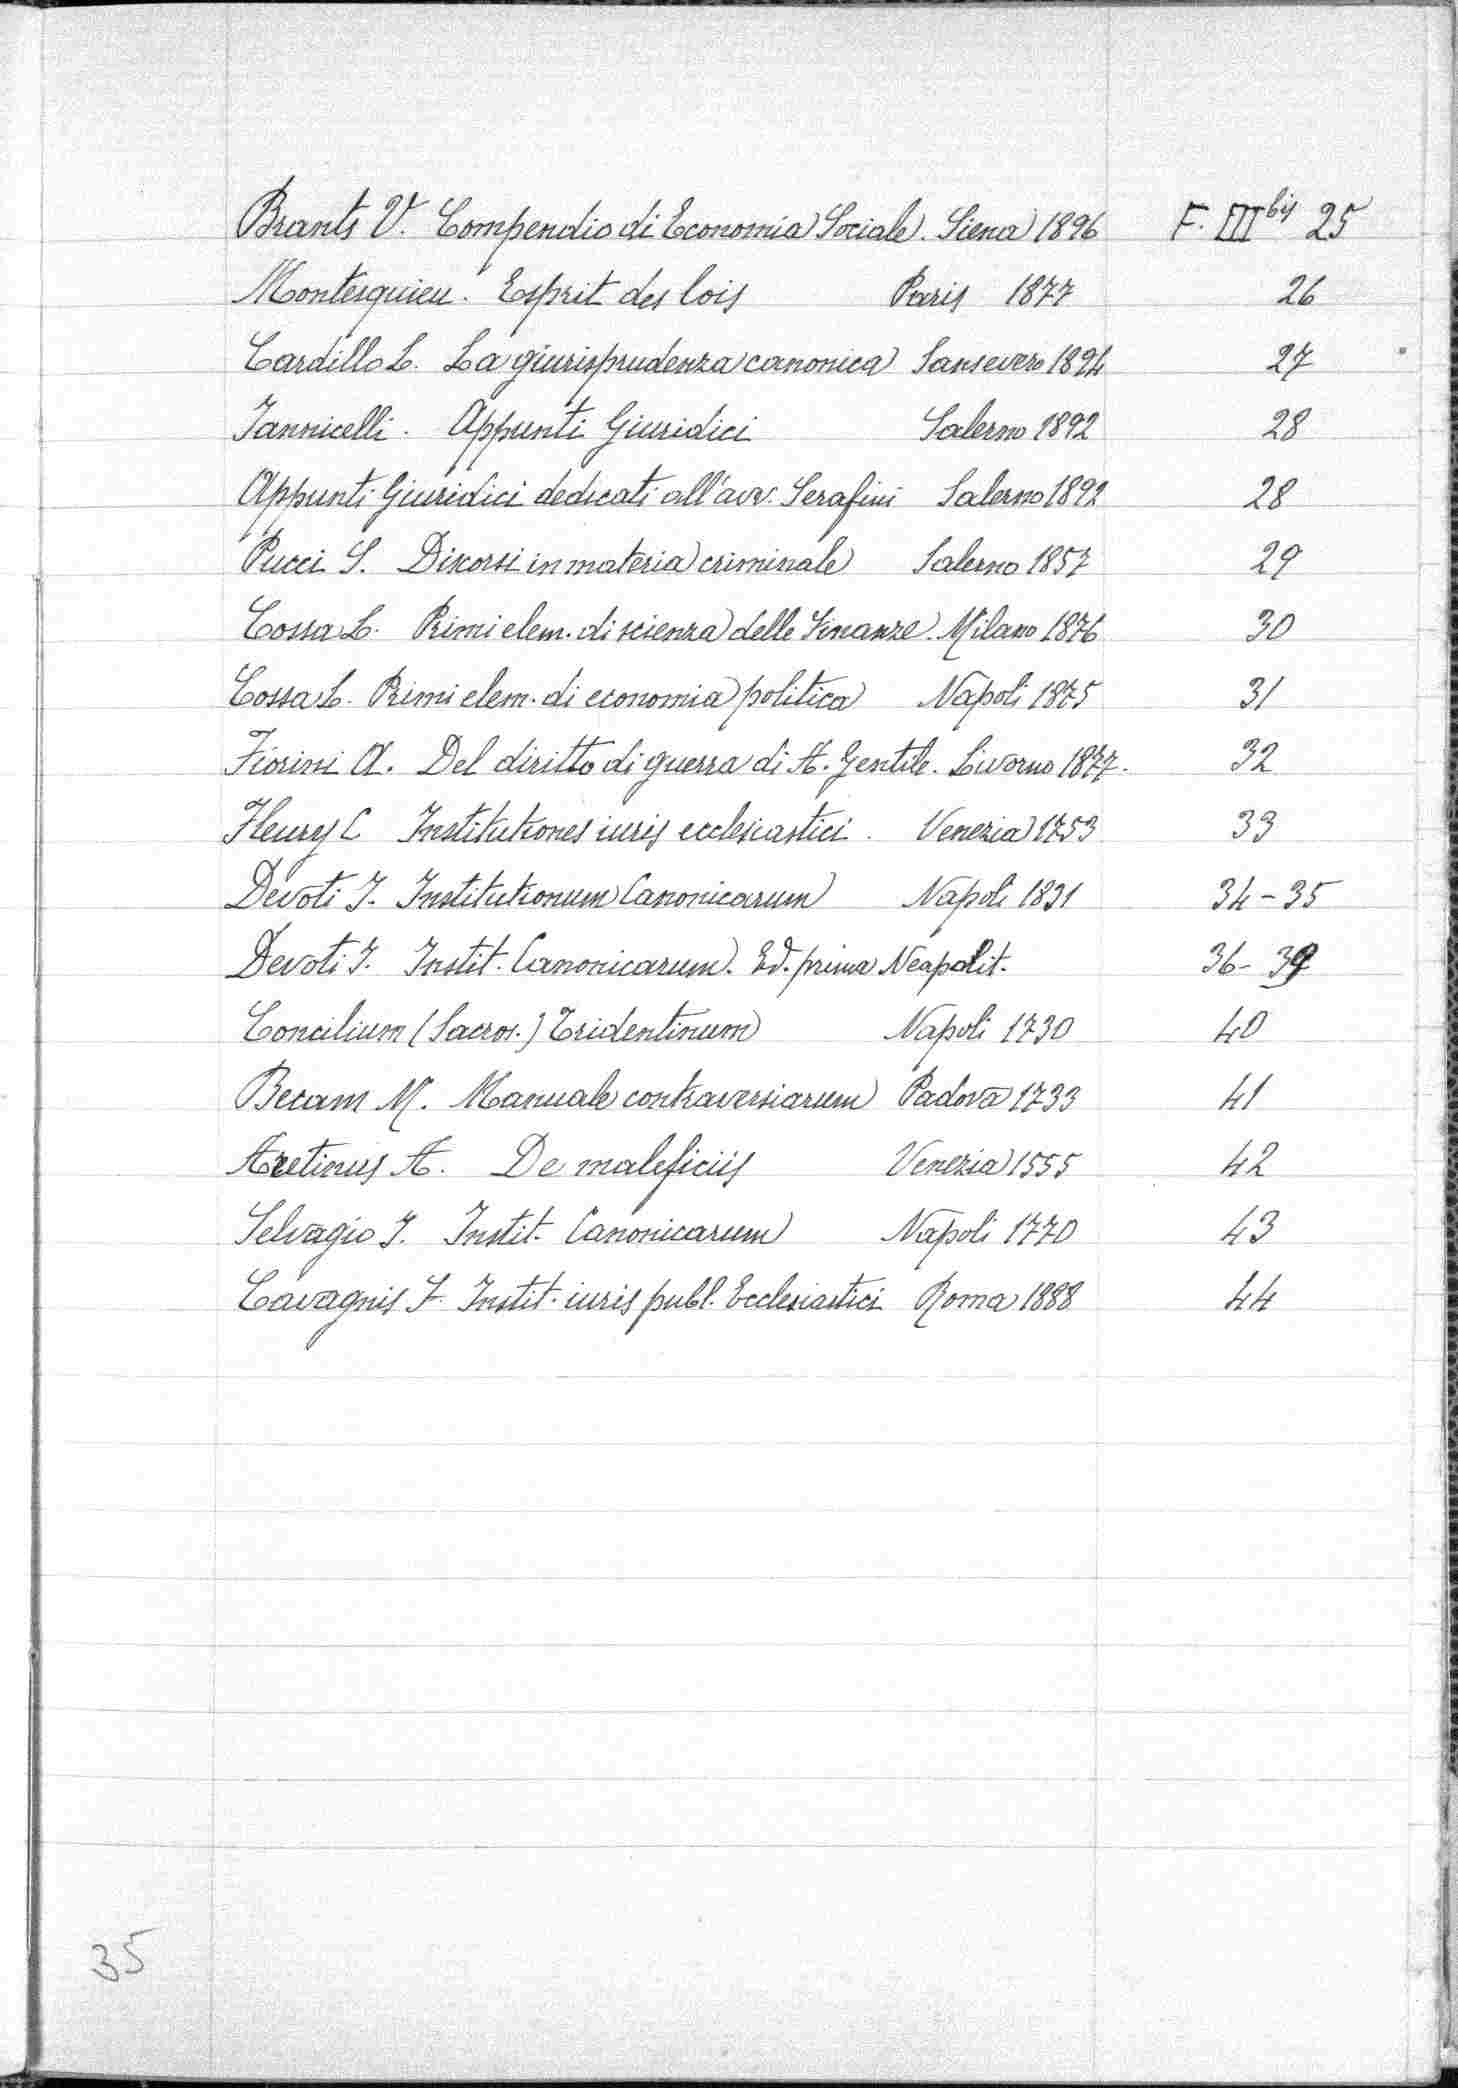 Brants V. Compendio di Economia Sociale. Siena 1896 F. III bis 25
Montesquieu. Esprit des lois Paris 1877 26
Cardillo L. La giurisprudenza canonica Sansevero 1894 27
Iannicelli. Appunti Giuridici Salerno 1892 28
Appunti Giuridici dedicati all'avv. Serafini Salerno 1892 28
Pucci S. Discorsi in materia criminale Salerno 1857 29
Cossa L. Primi elem. di scienza delle Finanze. Milano 1876 30
Cossa L. Primi elem. di economia politica Napoli 1875 31
Fiorini A. Del diritto di guerra di A. Gentile. Livorno 1877. 32
Fleury C Institutiones iuris ecclesiastici. Venezia 1753 33
Devoti I. Institutionum Canonicarum Napoli 1831 34-35
Devoti I. Instit. Canonicarum. Ed. prima Neapolit. 36-39
Concilium (Sacros.) Tridentinum Napoli 1730 40
Becam M. Manuale contraversiarum Padova 1733 41
Aretinus A. De maleficiis Venezia 1555 42
Selvagio I. Instit. Canonicarum Napoli 1770 43
Cavagnis F. Instit. iuris publ. Ecclesiastici Roma 1888 44
35